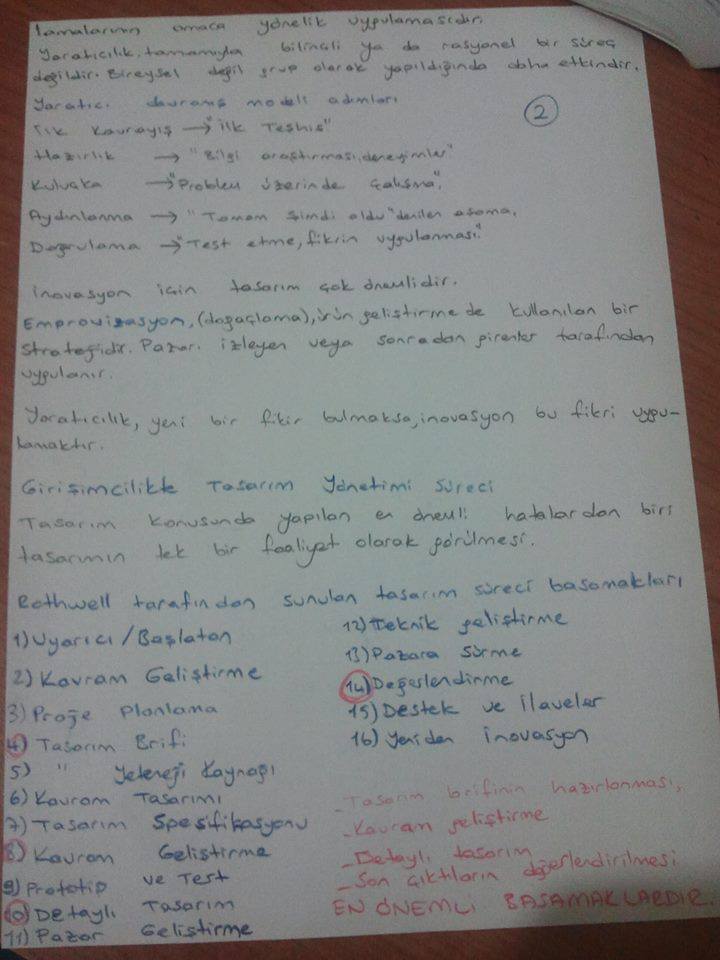 lamalarının amaca yönelik uygulamasıdır.
Yaratıcılık, tamamıyla bilinçli ya da rasyonel bir süreç
değildir. Bireysel değil grup olarak yapıldığında daha etkindir.
Yaratıcı davranış modeli adımları
2
İlk Kavrayış → "İlk Teşhis"
Hazırlık → "Bilgi araştırması, deneyimler"
Kuluçka → "Problem üzerinde çalışma",
Aydınlanma → "Tamam şimdi oldu" denilen aşama,
Doğrulama → "Test etme, fikrin uygulanması."
İnovasyon için tasarım çok önemlidir.
Emprovizasyon, (doğaçlama), ürün geliştirme de kullanılan bir
stratejidir. Pazarı izleyen veya sonradan girenler tarafından
uygulanır.
Yaratıcılık, yeni bir fikir bulmaksa, inovasyon bu fikri uygu-
lamaktır.
Girişimcilikte Tasarım Yönetimi Süreci
Tasarım konusunda yapılan en önemli hatalardan biri
tasarımın tek bir faaliyet olarak görülmesi.
Rothwell tarafından sunulan tasarım süreci basamakları
1) Uyarıcı / Başlatan
2) Kavram Geliştirme
3) Proje Planlama
4) Tasarım Brifi
5) " Yeteneği Kaynağı
6) Kavram Tasarımı
7) Tasarım Spesifikasyonu
8) Kavram Geliştirme
9) Prototip ve Test
10) Detaylı Tasarım
11) Pazar Geliştirme
12) Teknik geliştirme
13) Pazara Sürme
14) Değerlendirme
15) Destek ve İlaveler
16) Yeniden inovasyon
- Tasarım brifinin hazırlanması,
- Kavram geliştirme
- Detaylı tasarım
- Son çıktıların değerlendirilmesi
EN ÖNEMLİ BASAMAKLARDIR.